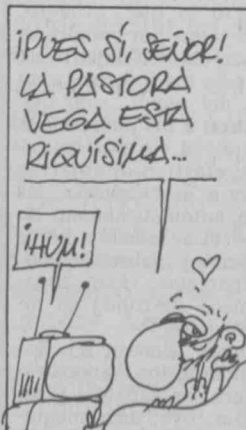 ¡PUES SÍ, SEÑOR!
LA PASTORA
VEGA ESTÁ
RIQUÍSIMA...
¡HUM!